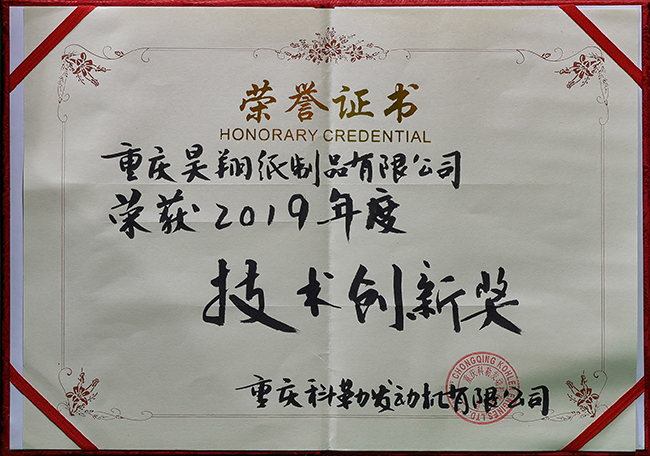 荣誉证书
HONORARY CREDENTIAL
重庆昊翔纸制品有限公司
荣获2019年度
技术创新奖
CHONGQING KOHLER ENGINES LTD
重庆科勒发动机有限公司